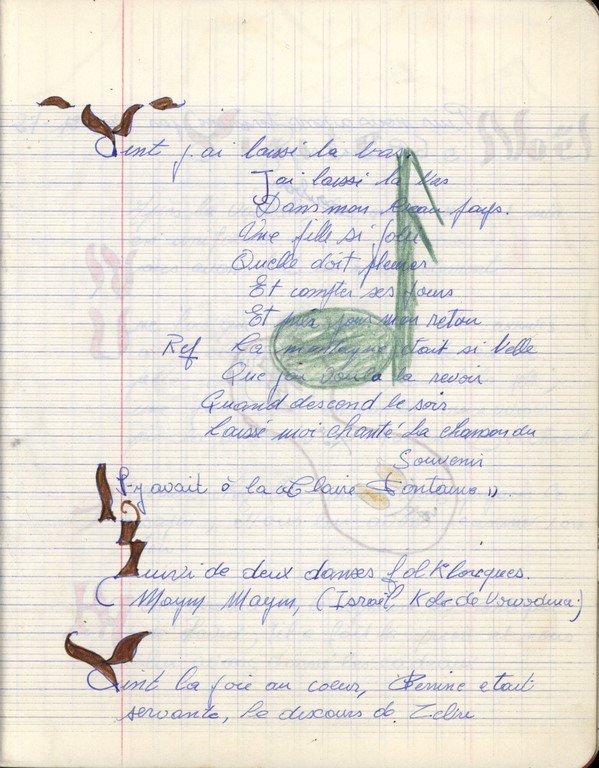 Vint j'ai laissé la bas.
J'ai laissé la bas
Dans mon beau pays.
Une fille si jolie
Quelle doit pleurer
Et compter ses jours
Et jour mon retour
Ref La montagne etait si belle
Que j'ai voulu la revoir
Quand descend le soir
Laissé moi chanté la chanson du
Souvenir
Il y avait à la Claire Fontaine ».
Suivi de deux danses folkloriques.
( Maym Maym, (Israël, Kolo de Vovodina.)
Vint la joie au coeur, Perrine etait
servante, le discours de